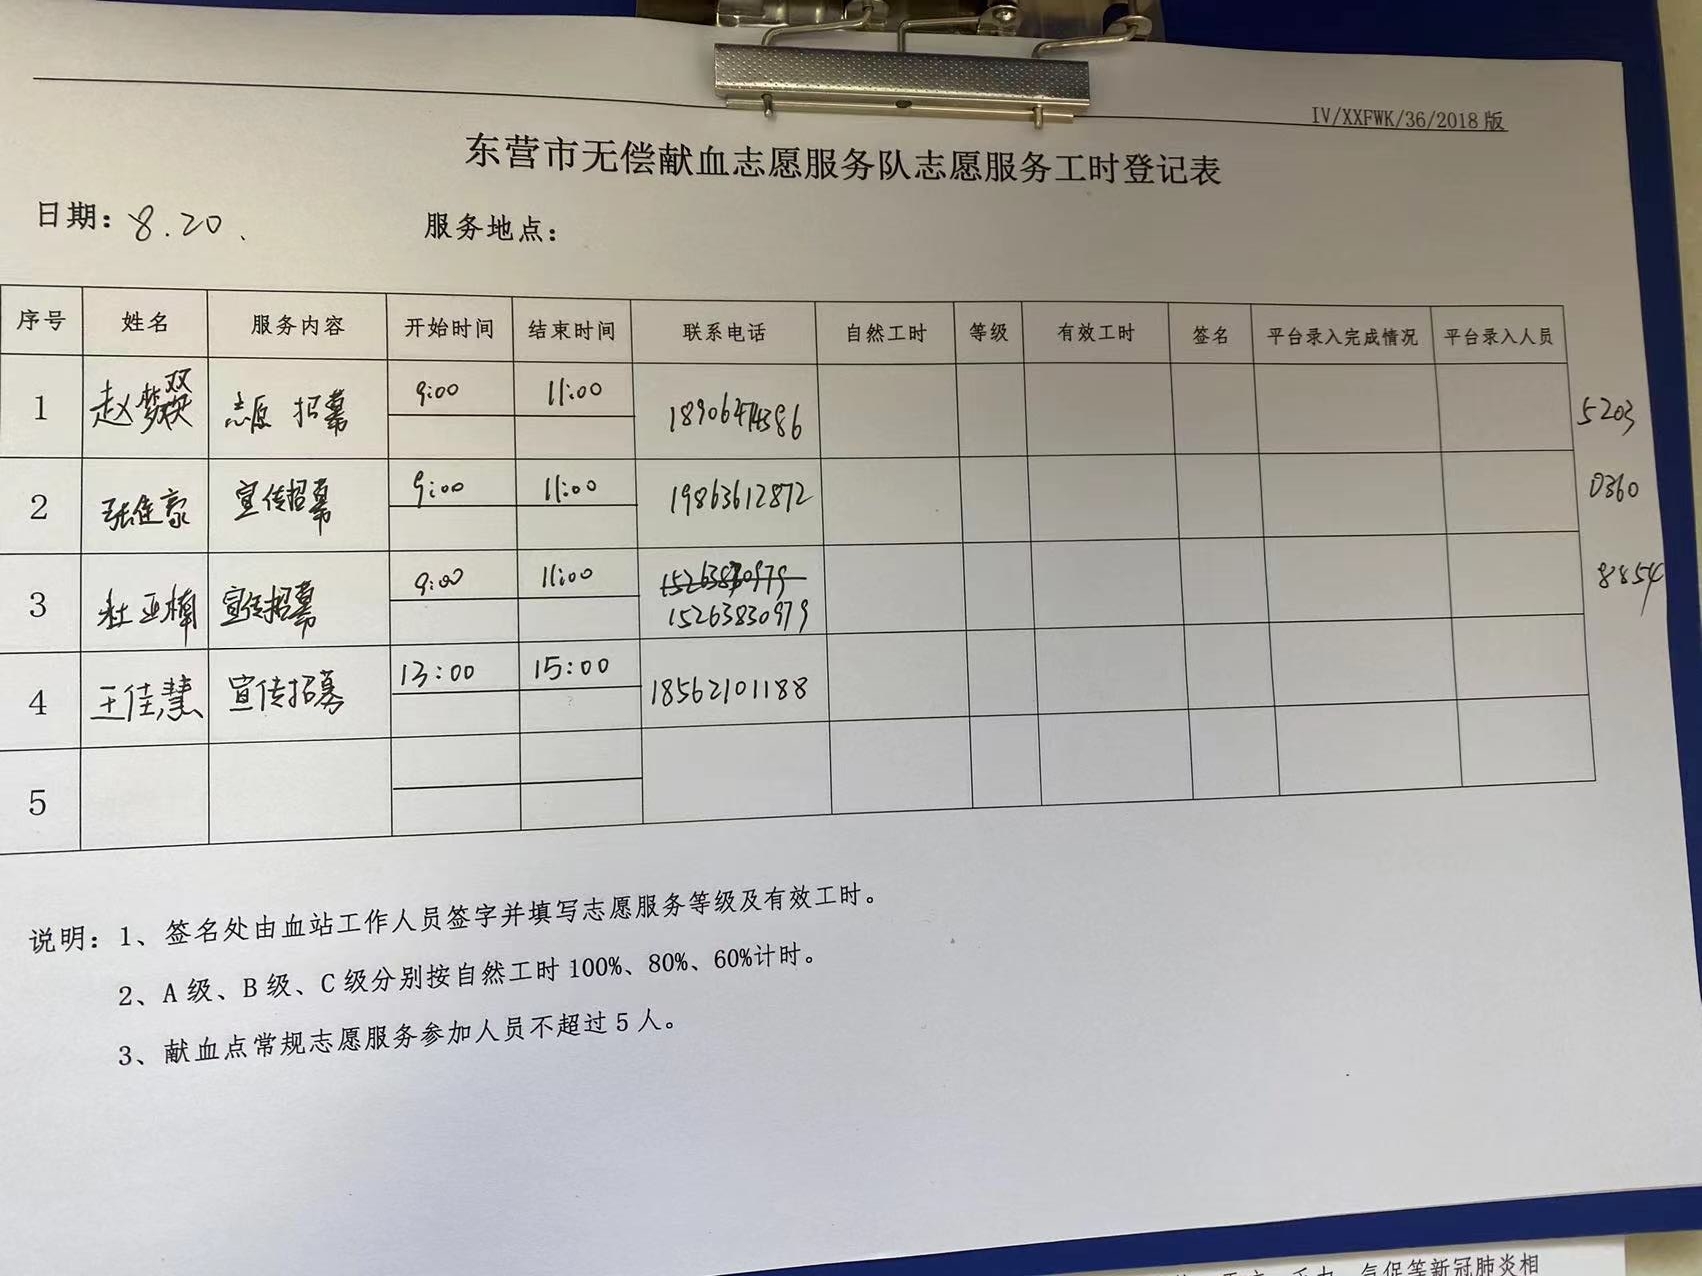 IV/XXFWK/36/2018版
东营市无偿献血志愿服务队志愿服务工时登记表
日期：8.20. 服务地点：
序号 姓名 服务内容 开始时间 结束时间 联系电话 自然工时 等级 有效工时 签名 平台录入完成情况 平台录入人员
1 赵梦 志愿 招募 9:00 11:00 5203
2 张佳豪 宣传招募 9:00 11:00 19863612872 0360
3 杜亚楠 宣传招募 9:00 11:00 15263830979 8854
15263830979
4 王佳慧 宣传招募 13:00 15:00 18562101188
5
说明：1、签名处由血站工作人员签字并填写志愿服务等级及有效工时。
2、A级、B级、C级分别按自然工时100%、80%、60%计时。
3、献血点常规志愿服务参加人员不超过5人。
气促等新冠肺炎相